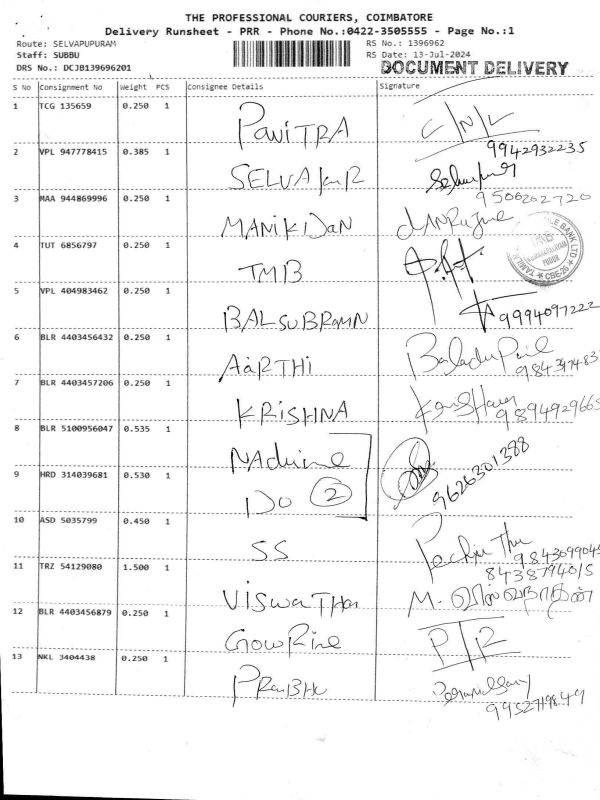 THE PROFESSIONAL COURIERS, COIMBATORE
Delivery Runsheet - PRR - Phone No.:0422-3505555 - Page No.:1
Route: SELVAPUPURAM RS No.: 1396962
Staff: SUBBU RS Date: 13-Jul-2024
DRS No.: DCJB139696201 DOCUMENT DELIVERY
S No Consignment No Weight PCS Consignee Details Signature
1 TCG 135659 0.250 1
PaviTRA C/N/L
9942932235
2 VPL 947778415 0.385 1
SELVA
3 MAA 944869996 0.250 1
9506202720
MANIKIDaN
4 TUT 6856797 0.250 1
TMB
5 VPL 404983462 0.250 1
BALSUBRAMN 9994097222
6 BLR 4403456432 0.250 1
AaRTHi
7 BLR 4403457206 0.250 1
KRISHNA 9894929665
8 BLR 5100956047 0.535 1
9626301388
9 HRD 314039681 0.530 1
DO 2
10 ASD 5035799 0.450 1
SS
11 TRZ 54129080 1.500 1
8438794015
ViswaTHan M. விஸ்வநாதன்
12 BLR 4403456879 0.250 1
GowRine P/R
13 NKL 3404438 0.250 1
PRaBHU
9952719849